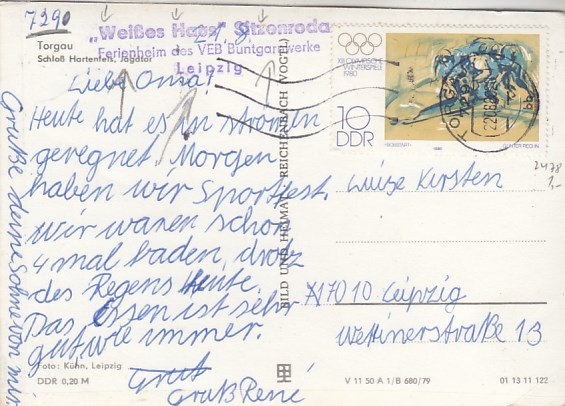 7290
„Weißes Haus" Sitzenroda
Ferienheim des VEB Buntgarnwerke
Leipzig
Torgau
Schloß Hartenfels, Jagdtor
Liebe Oma!
Heute hat es in strömen
geregnet. Morgen
haben wir Sportfest.
Wir waren schon
4 mal baden, drotz
des Regens Heute.
Das Essen ist sehr
gut, wie immer.
Gruß René
Grüße deine von mir
Foto: Kühn, Leipzig
DDR 0,20 M
BILD UND HEIMAT REICHENBACH (VOGTL)
XIII. OLYMPISCHE
WINTERSPIELE
1980
10
DDR
TORGAU
729
Luise Kirsten
7010 Leipzig
Wettinerstraße 13
2478
1,-
V 11 50 A 1/B 680/79
01 13 11 122